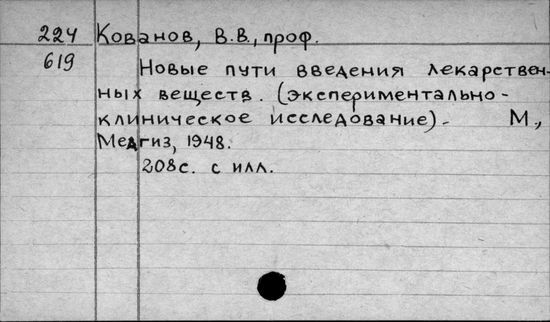 224 Кованов, В.В., проф.
619 Новые пути введения лекарствен-
ных веществ. (экспериментально-
клиническое исследование). М.,
Медгиз, 1948.
208с. с илл.